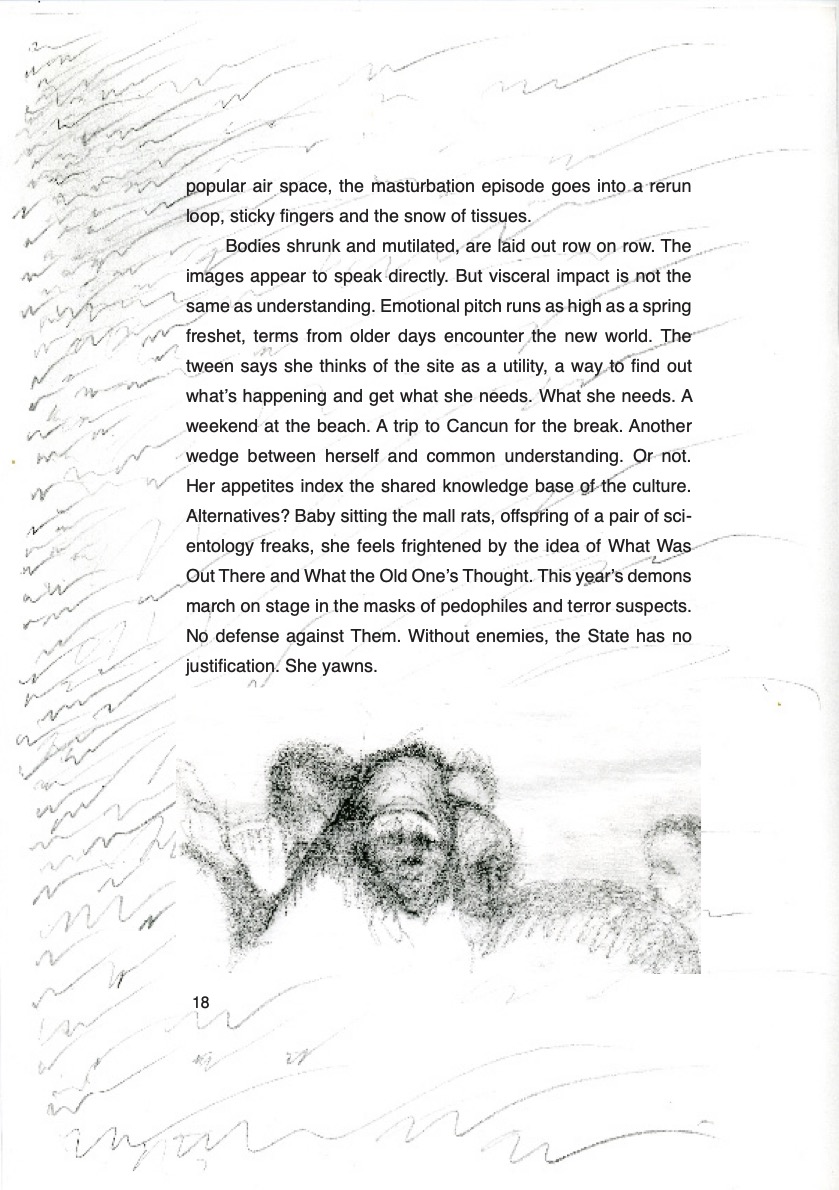 popular air space, the masturbation episode goes into a rerun
loop, sticky fingers and the snow of tissues.
Bodies shrunk and mutilated, are laid out row on row. The
images appear to speak directly. But visceral impact is not the
same as understanding. Emotional pitch runs as high as a spring
freshet, terms from older days encounter the new world. The
tween says she thinks of the site as a utility, a way to find out
what's happening and get what she needs. What she needs. A
weekend at the beach. A trip to Cancun for the break. Another
wedge between herself and common understanding. Or not.
Her appetites index the shared knowledge base of the culture.
Alternatives? Baby sitting the mall rats, offspring of a pair of sci-
entology freaks, she feels frightened by the idea of What Was
Out There and What the Old One's Thought. This year's demons
march on stage in the masks of pedophiles and terror suspects.
No defense against Them. Without enemies, the State has no
justification. She yawns.
18